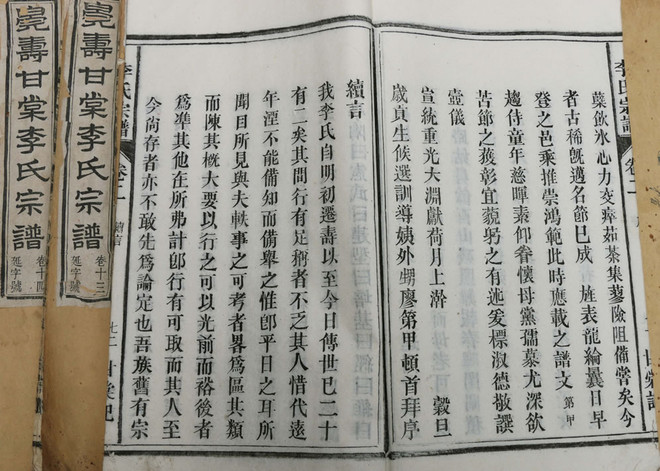 李氏宗譜
卷二
甘棠記
葉飲氷心力交瘁茹荼集蓼險阻備嘗矣今
者古稀旣邁名節巳成 旌表龍綸曩日早
登之邑乘推崇鴻範此時應載之譜文 第甲
趨侍童年慈暉秉仰眷懷母黨孺慕尤深欲
苦節之獲彰宜藐躬之有述爰標淑德敬撰
壼儀
宣統重光大淵獻荷月上澣 穀旦
歲貢生候選訓導姨外甥廖第甲頓首拜序
續言
我李氏自明初遷壽以至今日傳世已二十
有二矣其間行有足稱者不乏其人惜代遠
年湮不能備知而備舉之惟卽平日之耳所
聞目所見與夫軼事之可考者畧爲區其類
而陳其槪大要以行之可以光前而裕後者
爲準其他在所弗計卽行有可取而其人至
今尙存者亦不敢先爲論定也吾族舊有宗
李氏宗譜
卷二
續言
甘棠記
亮壽甘棠李氏宗譜
卷十三
延字號
亮壽甘棠李氏宗譜
卷十四
延字號